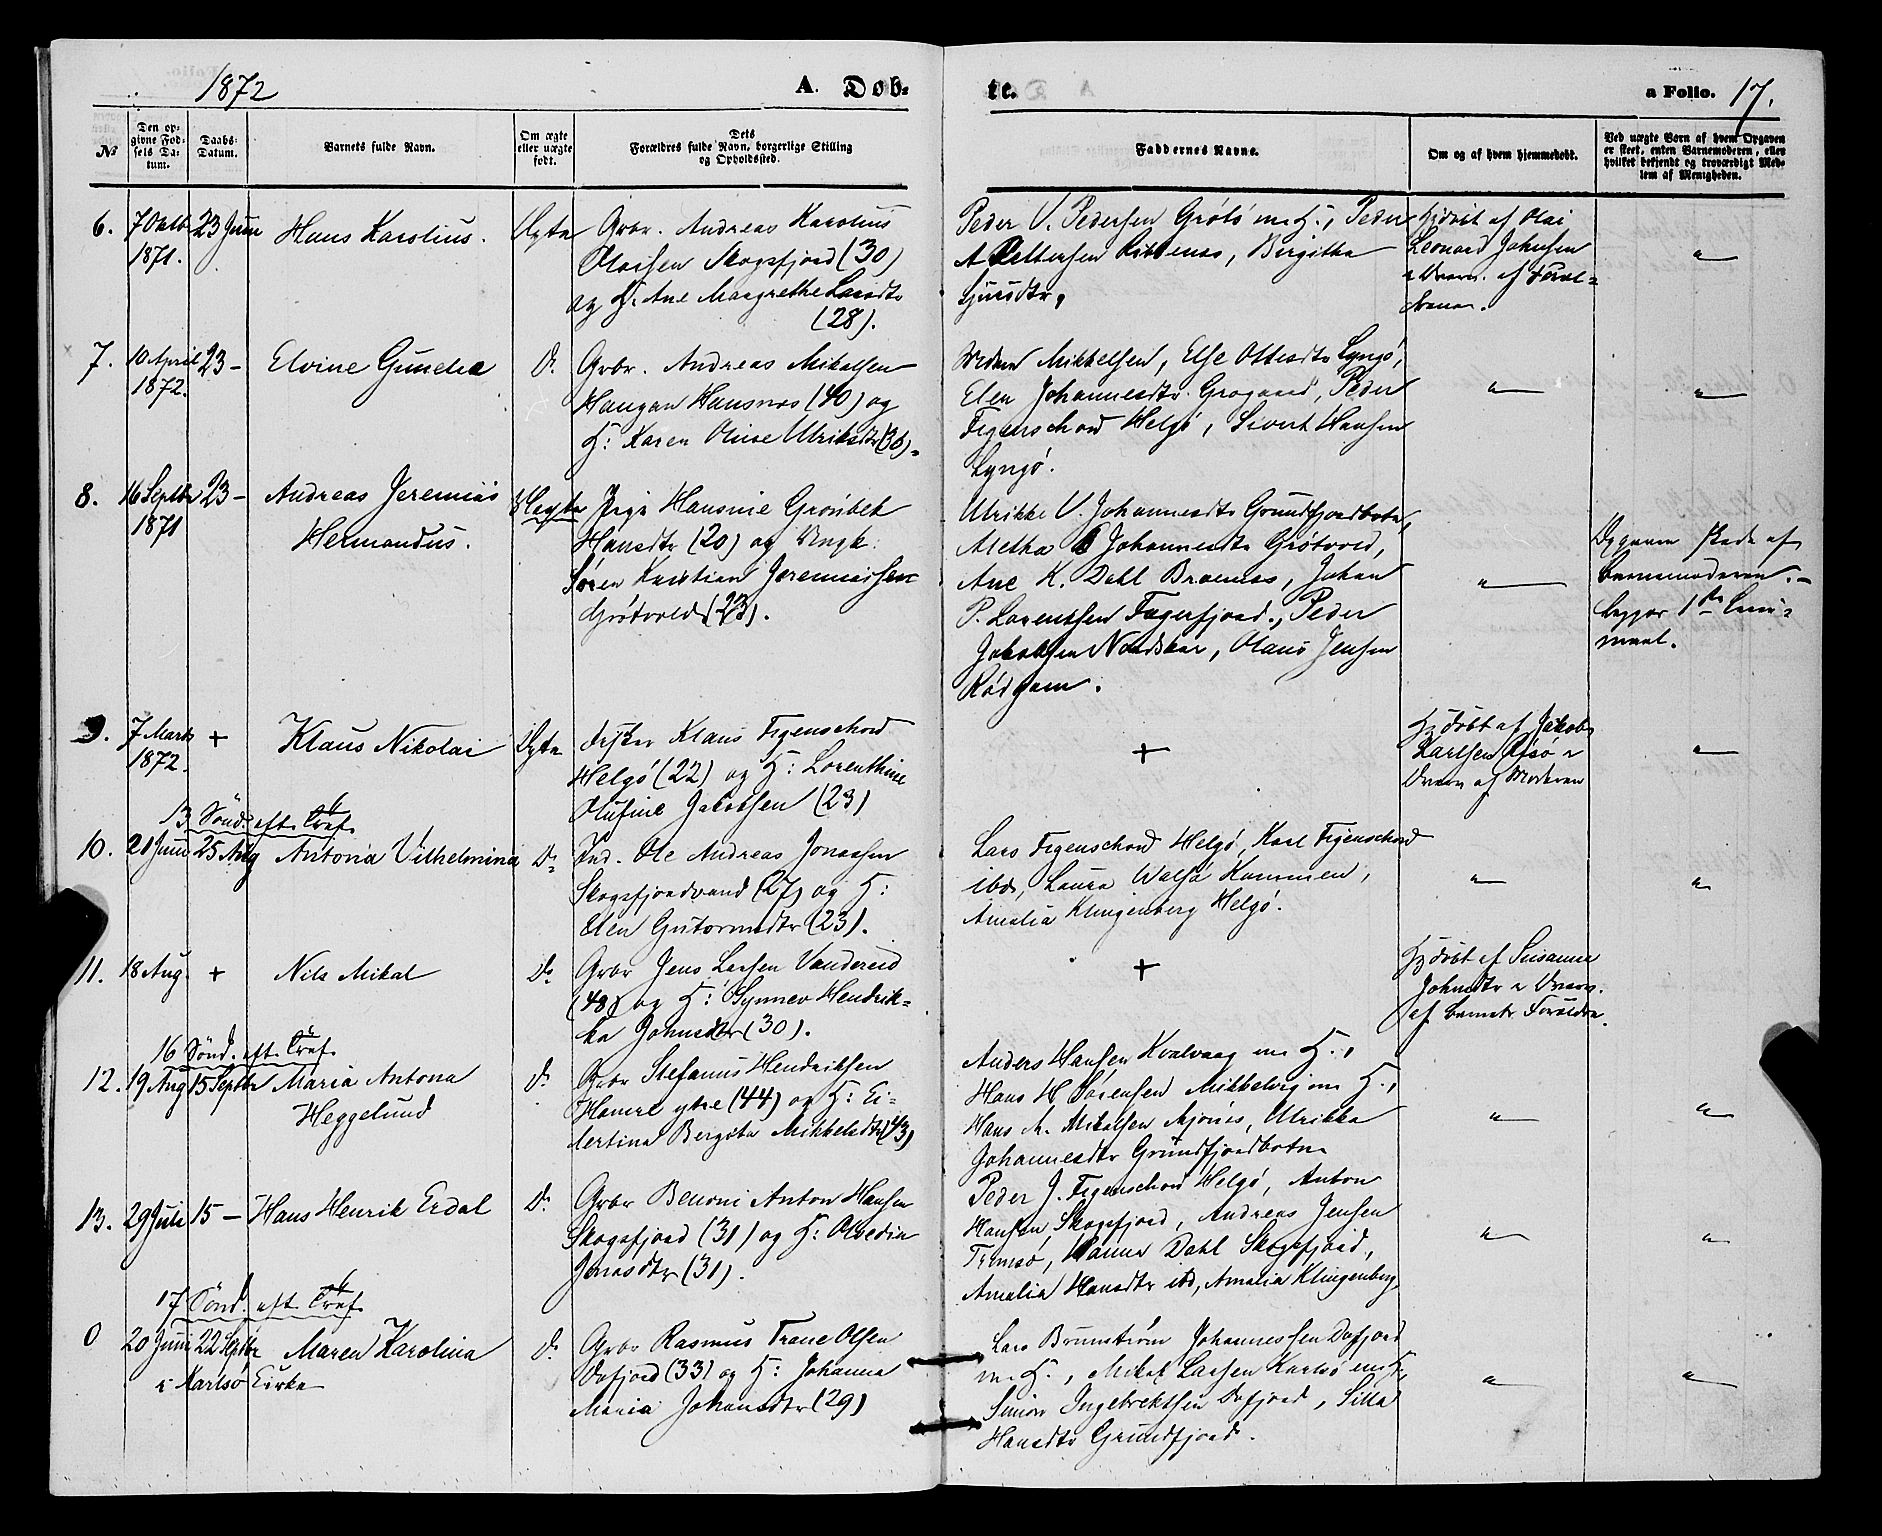 1872
A. Døb-
te.
a Folio. 17.
№
Den op-
givne Fød-
sels Da-
tum.
Daabs-
Datum.
Barnets fulde Navn.
Om ægte
eller uægte
født.
Dets
Forældres fulde Navn, borgerlige Stilling
og Opholdssted.
Faddernes Navne.
Om og af hvem hjemmedøbt.
Ved uægte Børn af hvem Opgaven
er skeet, enten Barnemoderen, eller
hvilket bekjendt og troværdigt Med-
lem af Menigheden.
6. 7 Octb 23 Juni Hans Karolius. Ægte Grbr. Andreas Karolius
1871.
Olaisen Skogsfjord (30)
og H. Ane Margrethe Larsdtr
(28).
Peder V. Pedersen Grøtø m H., Peder
A Pettersen, Birgitha
Hjdøbt af Olai
Leonard Johnsen
7. 10 April 23 – Elvine Gunelia D. Grbr. Andreas Mikalsen
1872.
Haugan Hansnæs (40) og
H: Karen Oluise Ulriksdtr (36).
Mikkelsen, Else Ottesdtr Lyngø,
Elen Johannesdtr. Grøgaard, Peder
Figenschou Helgø, Sivert Hansen
Lyngø.
8. 16 Septbr 23 – Andreas Jeremias Uægte Pige Hansine Grønbek
1871
Hermandus.
Hansdtr (20) og Ungk.
Søren Kristian Jeremiassen
Grøtvold (23).
Ulrikke V. Johannesdtr Grundfjordbotn,
Metha Johannesdtr Grøtvold,
Ane K. Dahl, Johan
P. Lorentsen Fagerfjord., Peder
Jakobsen, Olaus Jensen
Opgaven skede af
Barnemoderen. –
1ste
maal.
9. 7 Marts + Klaus Nikolai Ægte Fisker Klaus Figenschou
1872.
Helgø (22) og H: Lorenthine
Olufine Jakobsen (23)
+
Hjdøbt af Jakob
Karlsen
af Moderen
13 Sønd. eft. Tref.
10. 21 Juni 25 Aug Antona Vilhelmina D. Ind. Ole Andreas Jonassen
Skogsfjordvand (27) og H:
Elen Gutormsdtr (23).
Lars Figenschou Helgø, Karl Figenschou
ibd, Laura Walsø Kammen,
Amalia Klingenberg Helgø.
11. 18 Aug. + Nils Mikal D. Grbr Jens Larsen Vandereid
(48) og H: Synnev Hendrik-
ka Johnsdtr (30).
+
Hjdøbt af Susanna
Johnsdtr
af Barnets Forældre.
16 Sønd. eft. Tref.
12. 19 Aug 15 Septbr Maria Antona D. Grbr Stefanus Hendriksen
Heggelund
Hamre ytre (44) og H: El-
lertina Bergita Mikkelsdtr (43)
Anders Hansen Kvalvaag m H.,
Hans H Sørensen Mikkelvig m H.,
Hans M. Mikalsen Mjønes, Ulrikka
Johannesdtr Grundfjordbotn
13. 29 Juli 15 – Hans Henrik Erdal D. Grbr Benoni Anton Hansen
Skogsfjord (31) og H: Olvedia
Jonasdtr (31).
Peder J. Figenschou Helgø, Anton
Hansen, Skogsfjord, Andreas Jensen
Tromsø, Hanna Dahl Skogsfjord,
Amalia Hansdtr ibd, Amalia Klingenberg
17 Sønd. eft. Tref.
0 20 Juni 22 Septbr Maren Karolina D. Grbr Rasmus Trane Olsen
i Karlsø Kirke
Dafjord (33) og H: Johanna
Maria Johansdtr (29)
Lars Brunstrøm Johannessen Dafjord
m H., Mikal Larsen Karlsø m H.,
Simon Ingebrektsen Dafjord, Silla
Hansdtr Grundfjord.